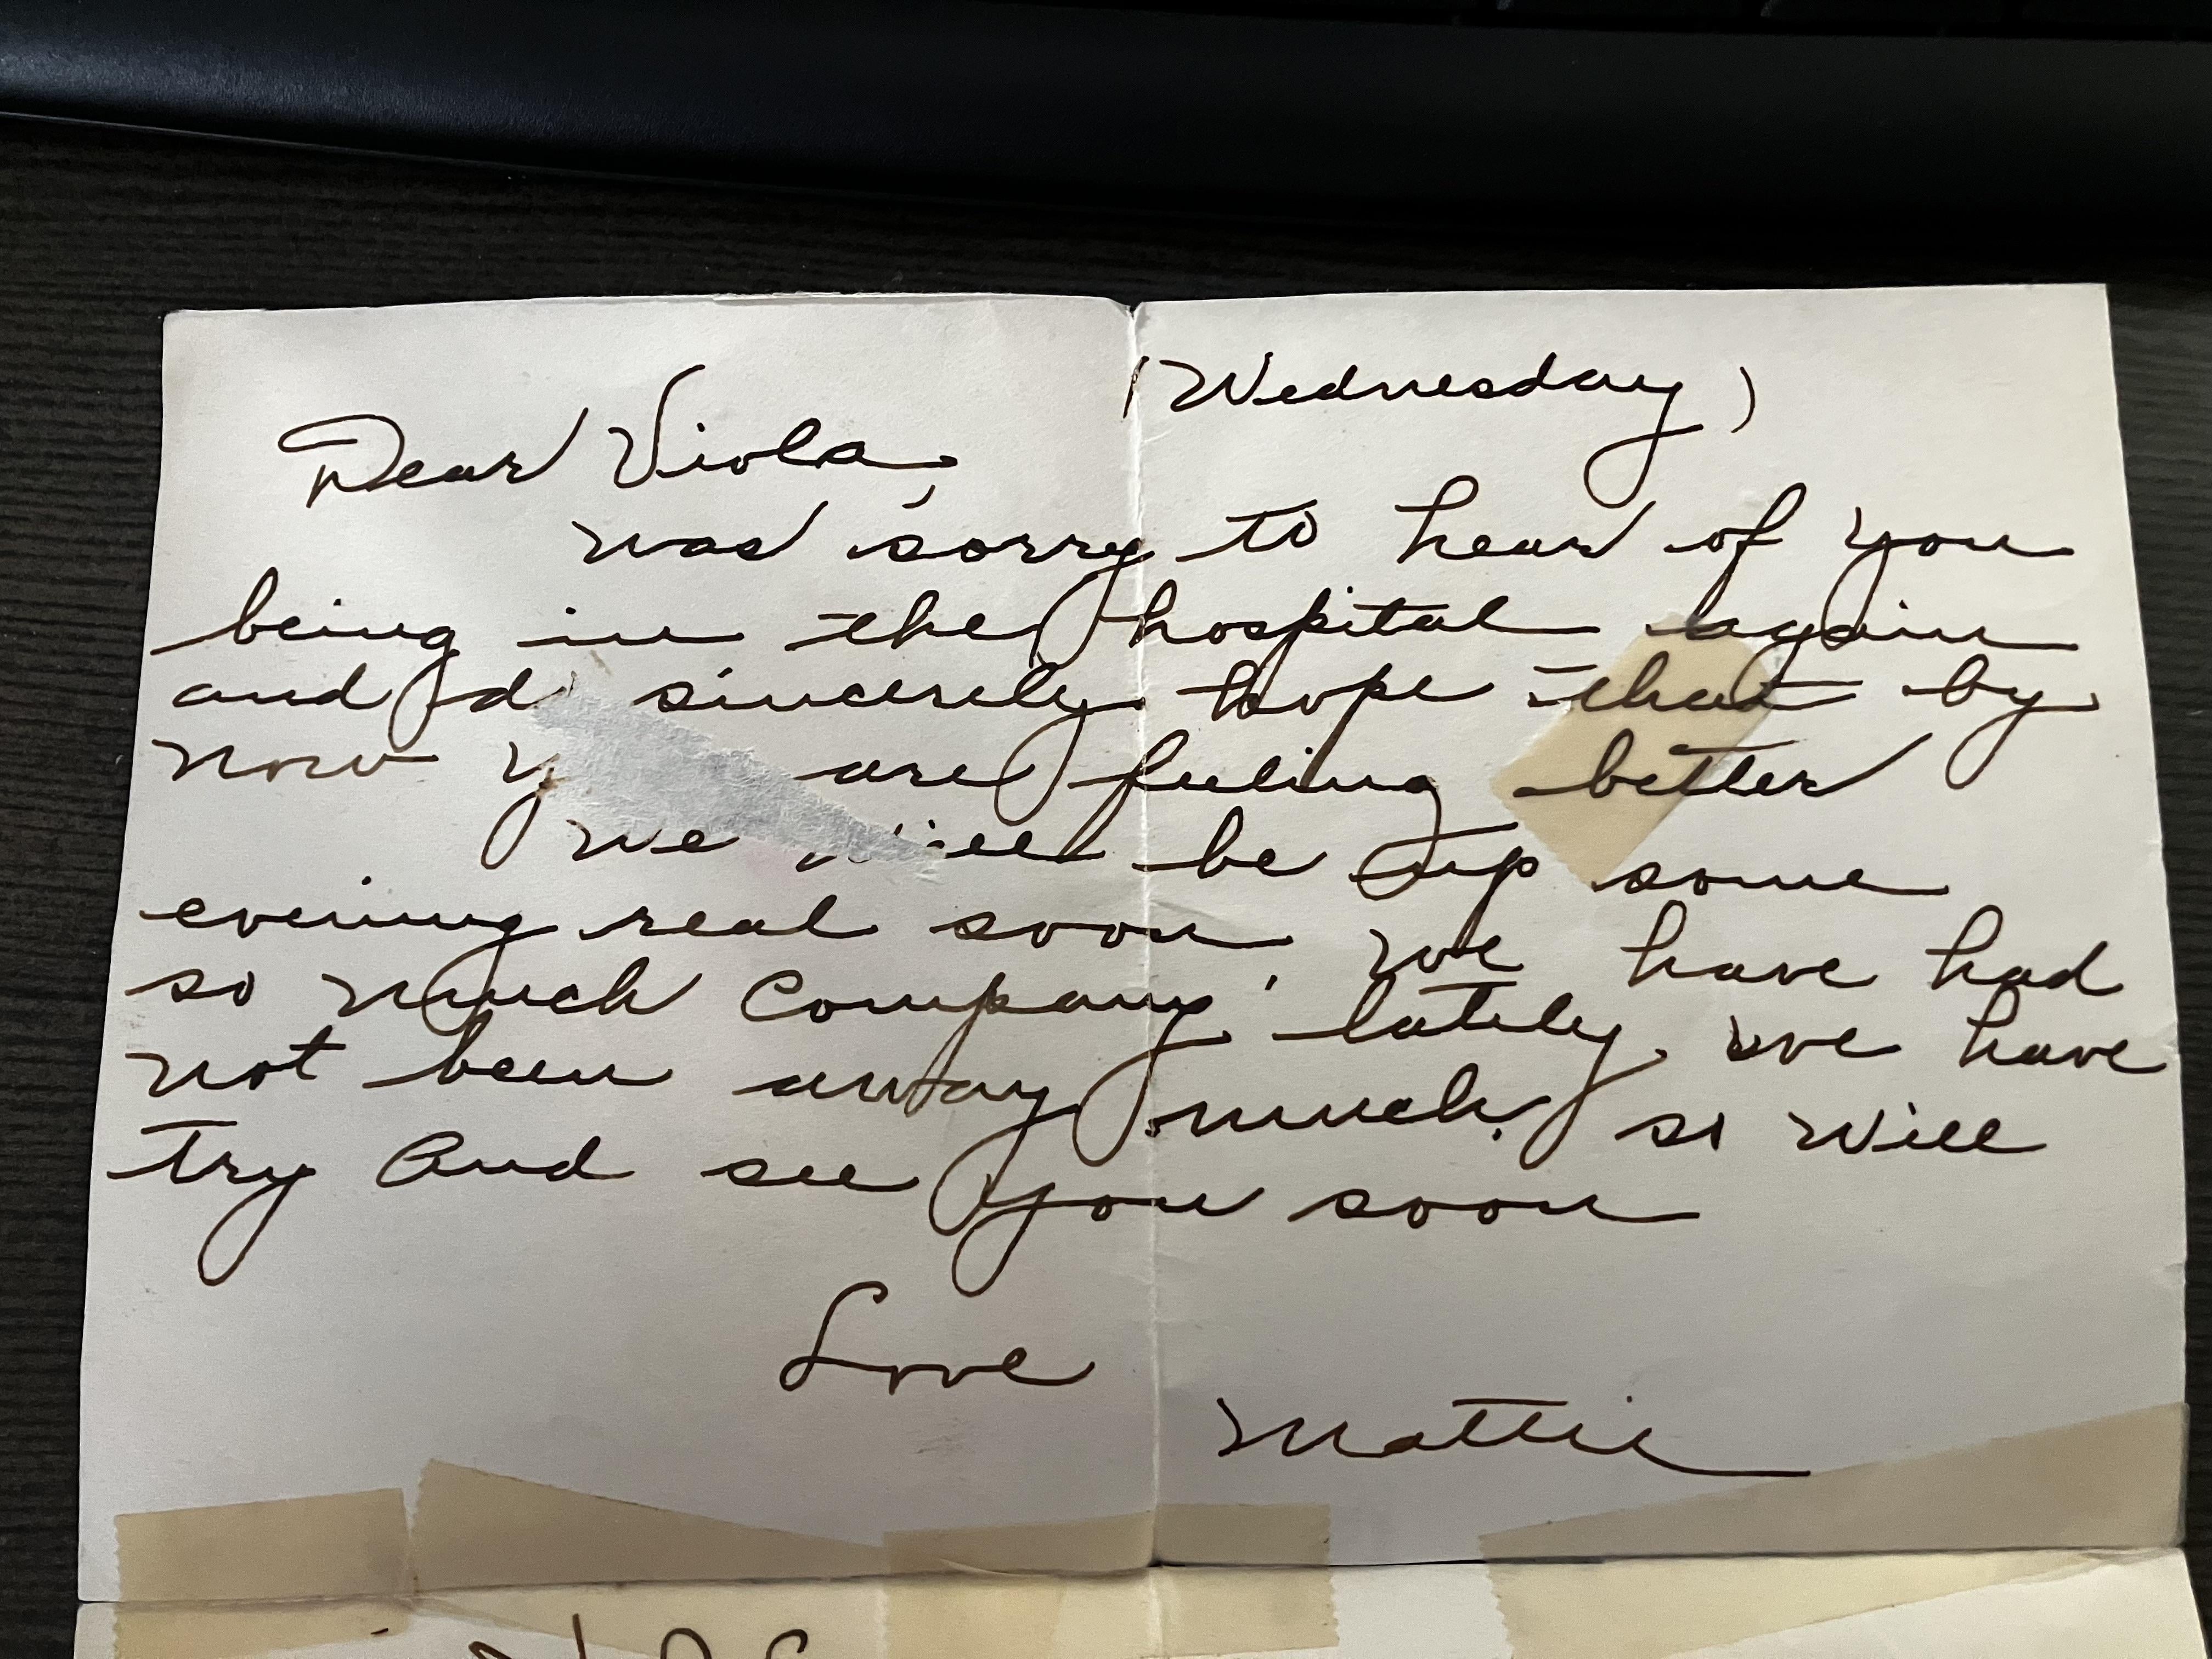 (Wednesday)
Dear Viola,
was sorry to hear of you
being in the hospital again
and d sincerely hope that by
now y are feeling better
we will be up some
evening real soon. we have had
so much company lately, we have
not been away much, so will
try and see you soon
Love
Mattie